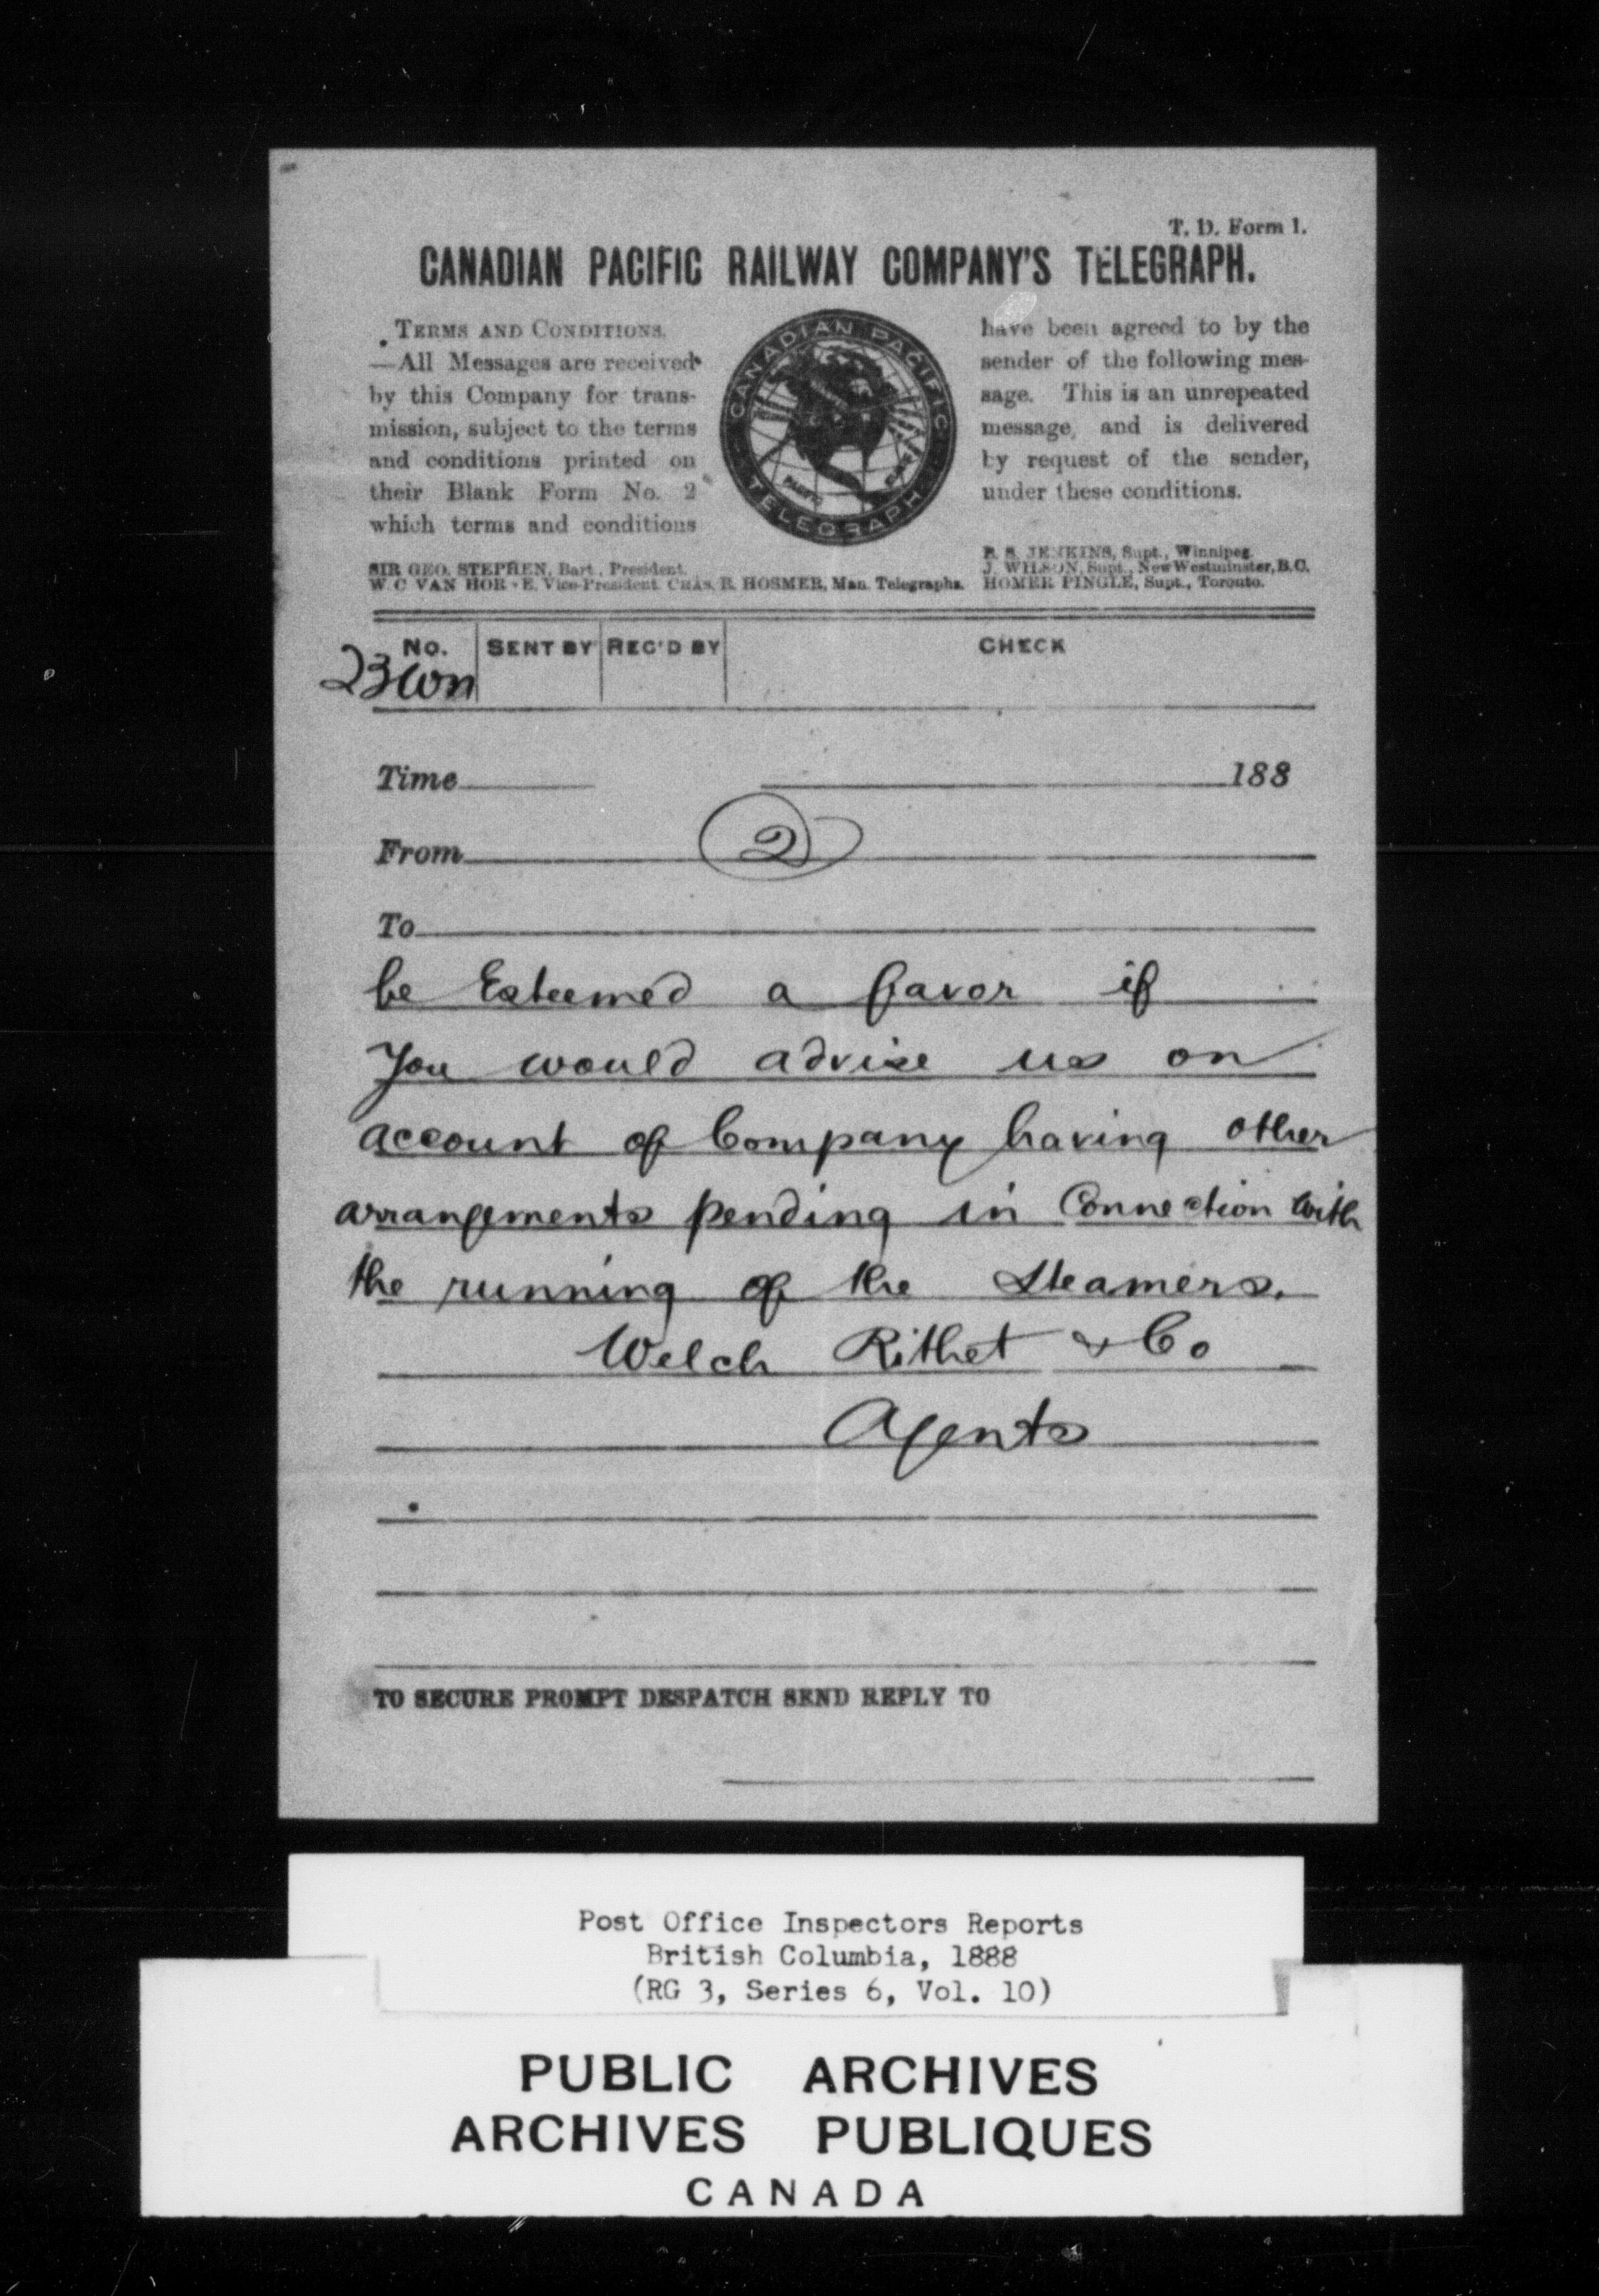 T. D. Form 1.
CANADIAN PACIFIC RAILWAY COMPANY'S TELEGRAPH.
TERMS AND CONDITIONS.
—All Messages are received
by this Company for trans-
mission, subject to the terms
and conditions printed on
their Blank Form No. 2
which terms and conditions
CANADIAN PACIFIC
TELEGRAPH
PACIFIC
have been agreed to by the
sender of the following mes-
sage. This is an unrepeated
message, and is delivered
by request of the sender,
under these conditions.
SIR GEO. STEPHEN, Bart., President.
W. C. VAN HORNE, Vice-President. CHAS. R. HOSMER, Man. Telegraphs.
B. S. JENKINS, Supt., Winnipeg.
J. WILSON, Supt., New Westminster, B.C.
HOMER PINGLE, Supt., Toronto.
No. SENT BY REC'D BY CHECK
23
Time 188
From 2
To
be Esteemed a favor if
You would advise us on
account of Company having other
arrangements pending in Connection with
the running of the Steamers.
Welch Rithet & Co
Agents
TO SECURE PROMPT DESPATCH SEND REPLY TO
Post Office Inspectors Reports
British Columbia, 1888
(RG 3, Series 6, Vol. 10)
PUBLIC ARCHIVES
ARCHIVES PUBLIQUES
CANADA